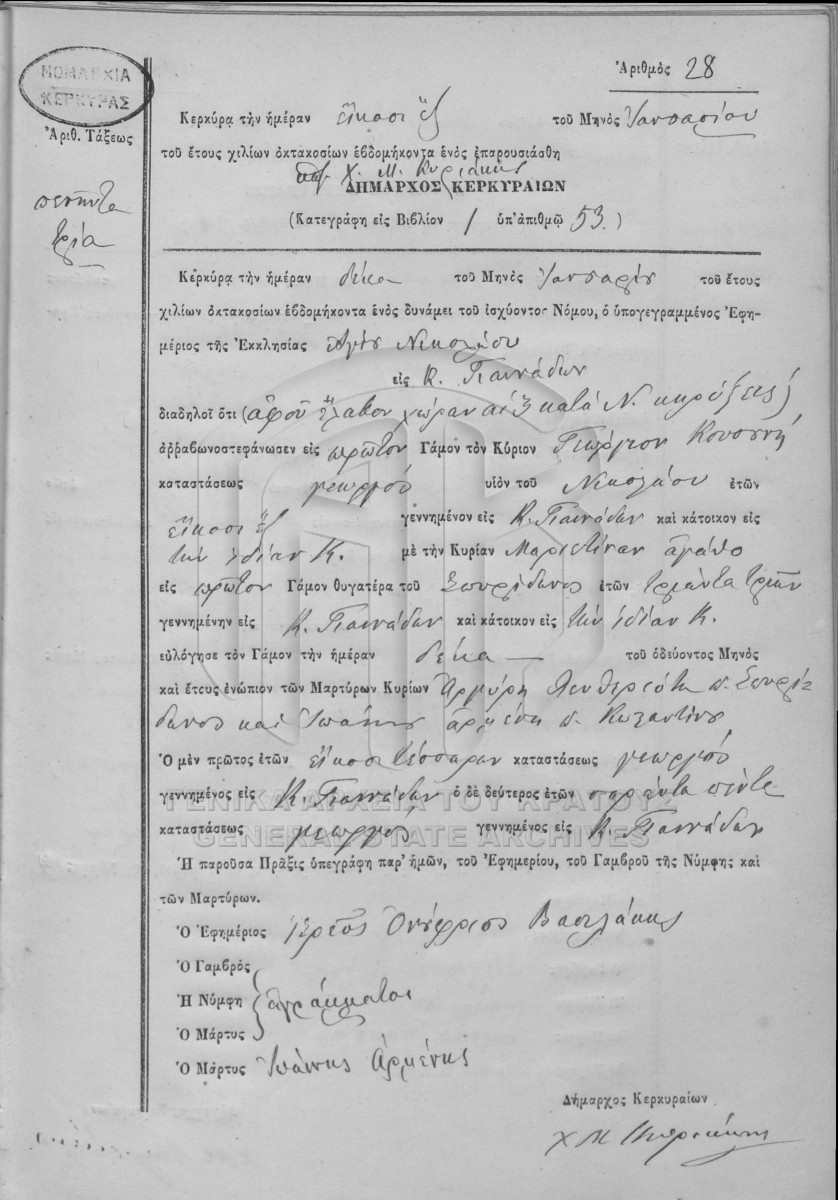 ΝΟΜΑΡΧΙΑ
ΚΕΡΚΥΡΑΣ
Ἀριθ. Τάξεως
πενῆντα
τρία
Ἀριθμὸς 28
Κερκύρᾳ τὴν ἡμέραν εἴκοσι ἕξ τοῦ Μηνὸς Ἰανουαρίου
τοῦ ἔτους χιλίων ὀκτακοσίων ἑβδομήκοντα ἑνὸς ἐπαρουσιάσθη
Χ. Μ. Κυριάκης
ΔΗΜΑΡΧΟΣ ΚΕΡΚΥΡΑΙΩΝ
(Κατεγράφη εἰς Βιβλίον 1 ὑπ' ἀριθμῷ 53.)
Κερκύρᾳ τὴν ἡμέραν δέκα τοῦ Μηνὸς Ἰανουαρίου τοῦ ἔτους
χιλίων ὀκτακοσίων ἑβδομήκοντα ἑνὸς δυνάμει τοῦ ἰσχύοντος Νόμου, ὁ ὑπογεγραμμένος Ἐφη-
μέριος τῆς Ἐκκλησίας Ἁγίου Νικολάου
εἰς Κ. Γιαννάδων
διαδηλοῖ ὅτι (ἀφοῦ ἔλαβον χώραν αἱ κατὰ Ν. κηρύξεις)
ἀῤῥαβωνοστεφάνωσεν εἰς πρῶτον Γάμον τὸν Κύριον Γεώργιον
καταστάσεως γεωργοῦ υἱὸν τοῦ Νικολάου ἐτῶν
εἴκοσι ἕξ γεννημένον εἰς Κ. Γιαννάδων καὶ κάτοικον εἰς
τὴν ἰδίαν Κ. μὲ τὴν Κυρίαν
εἰς πρῶτον Γάμον θυγατέρα τοῦ Σπυρίδωνος ἐτῶν τριάντα τριῶν
γεννημένην εἰς Κ. Γιαννάδων καὶ κάτοικον εἰς τὴν ἰδίαν Κ.
εὐλόγησε τὸν Γάμον τὴν ἡμέραν δέκα τοῦ ὁδεύοντος Μηνὸς
καὶ ἔτους ἐνώπιον τῶν Μαρτύρων Κυρίων Ἀργύρη π. Σπυρί-
δωνος καὶ Ἰωάννης Ἀρμένη π. Κωσταντίνου
Ὁ μὲν πρῶτος ἐτῶν εἴκοσι τέσσαραν καταστάσεως γεωργοῦ
γεννημένος εἰς Κ. Γιαννάδων ὁ δὲ δεύτερος ἐτῶν σαράντα πέντε
καταστάσεως γεωργός γεννημένος εἰς Κ. Γιαννάδων
ΓΕΝΙΚΑ ΑΡΧΕΙΑ ΤΟΥ ΚΡΑΤΟΥΣ
GENERAL STATE ARCHIVES
Ἡ παροῦσα Πρᾶξις ὑπεγράφη παρ' ἡμῶν, τοῦ Ἐφημερίου, τοῦ Γαμβροῦ τῆς Νύμφης καὶ
τῶν Μαρτύρων.
Ὁ Ἐφημέριος Ἱερεὺς Ὀνούφριος Βασιλάκης
Ὁ Γαμβρὸς
Ἡ Νύμφη ἀγράμματοι
Ὁ Μάρτυς
Ὁ Μάρτυς Ἰωάννης Ἀρμένης
Δήμαρχος Κερκυραίων
Χ Μ Κυριάκης